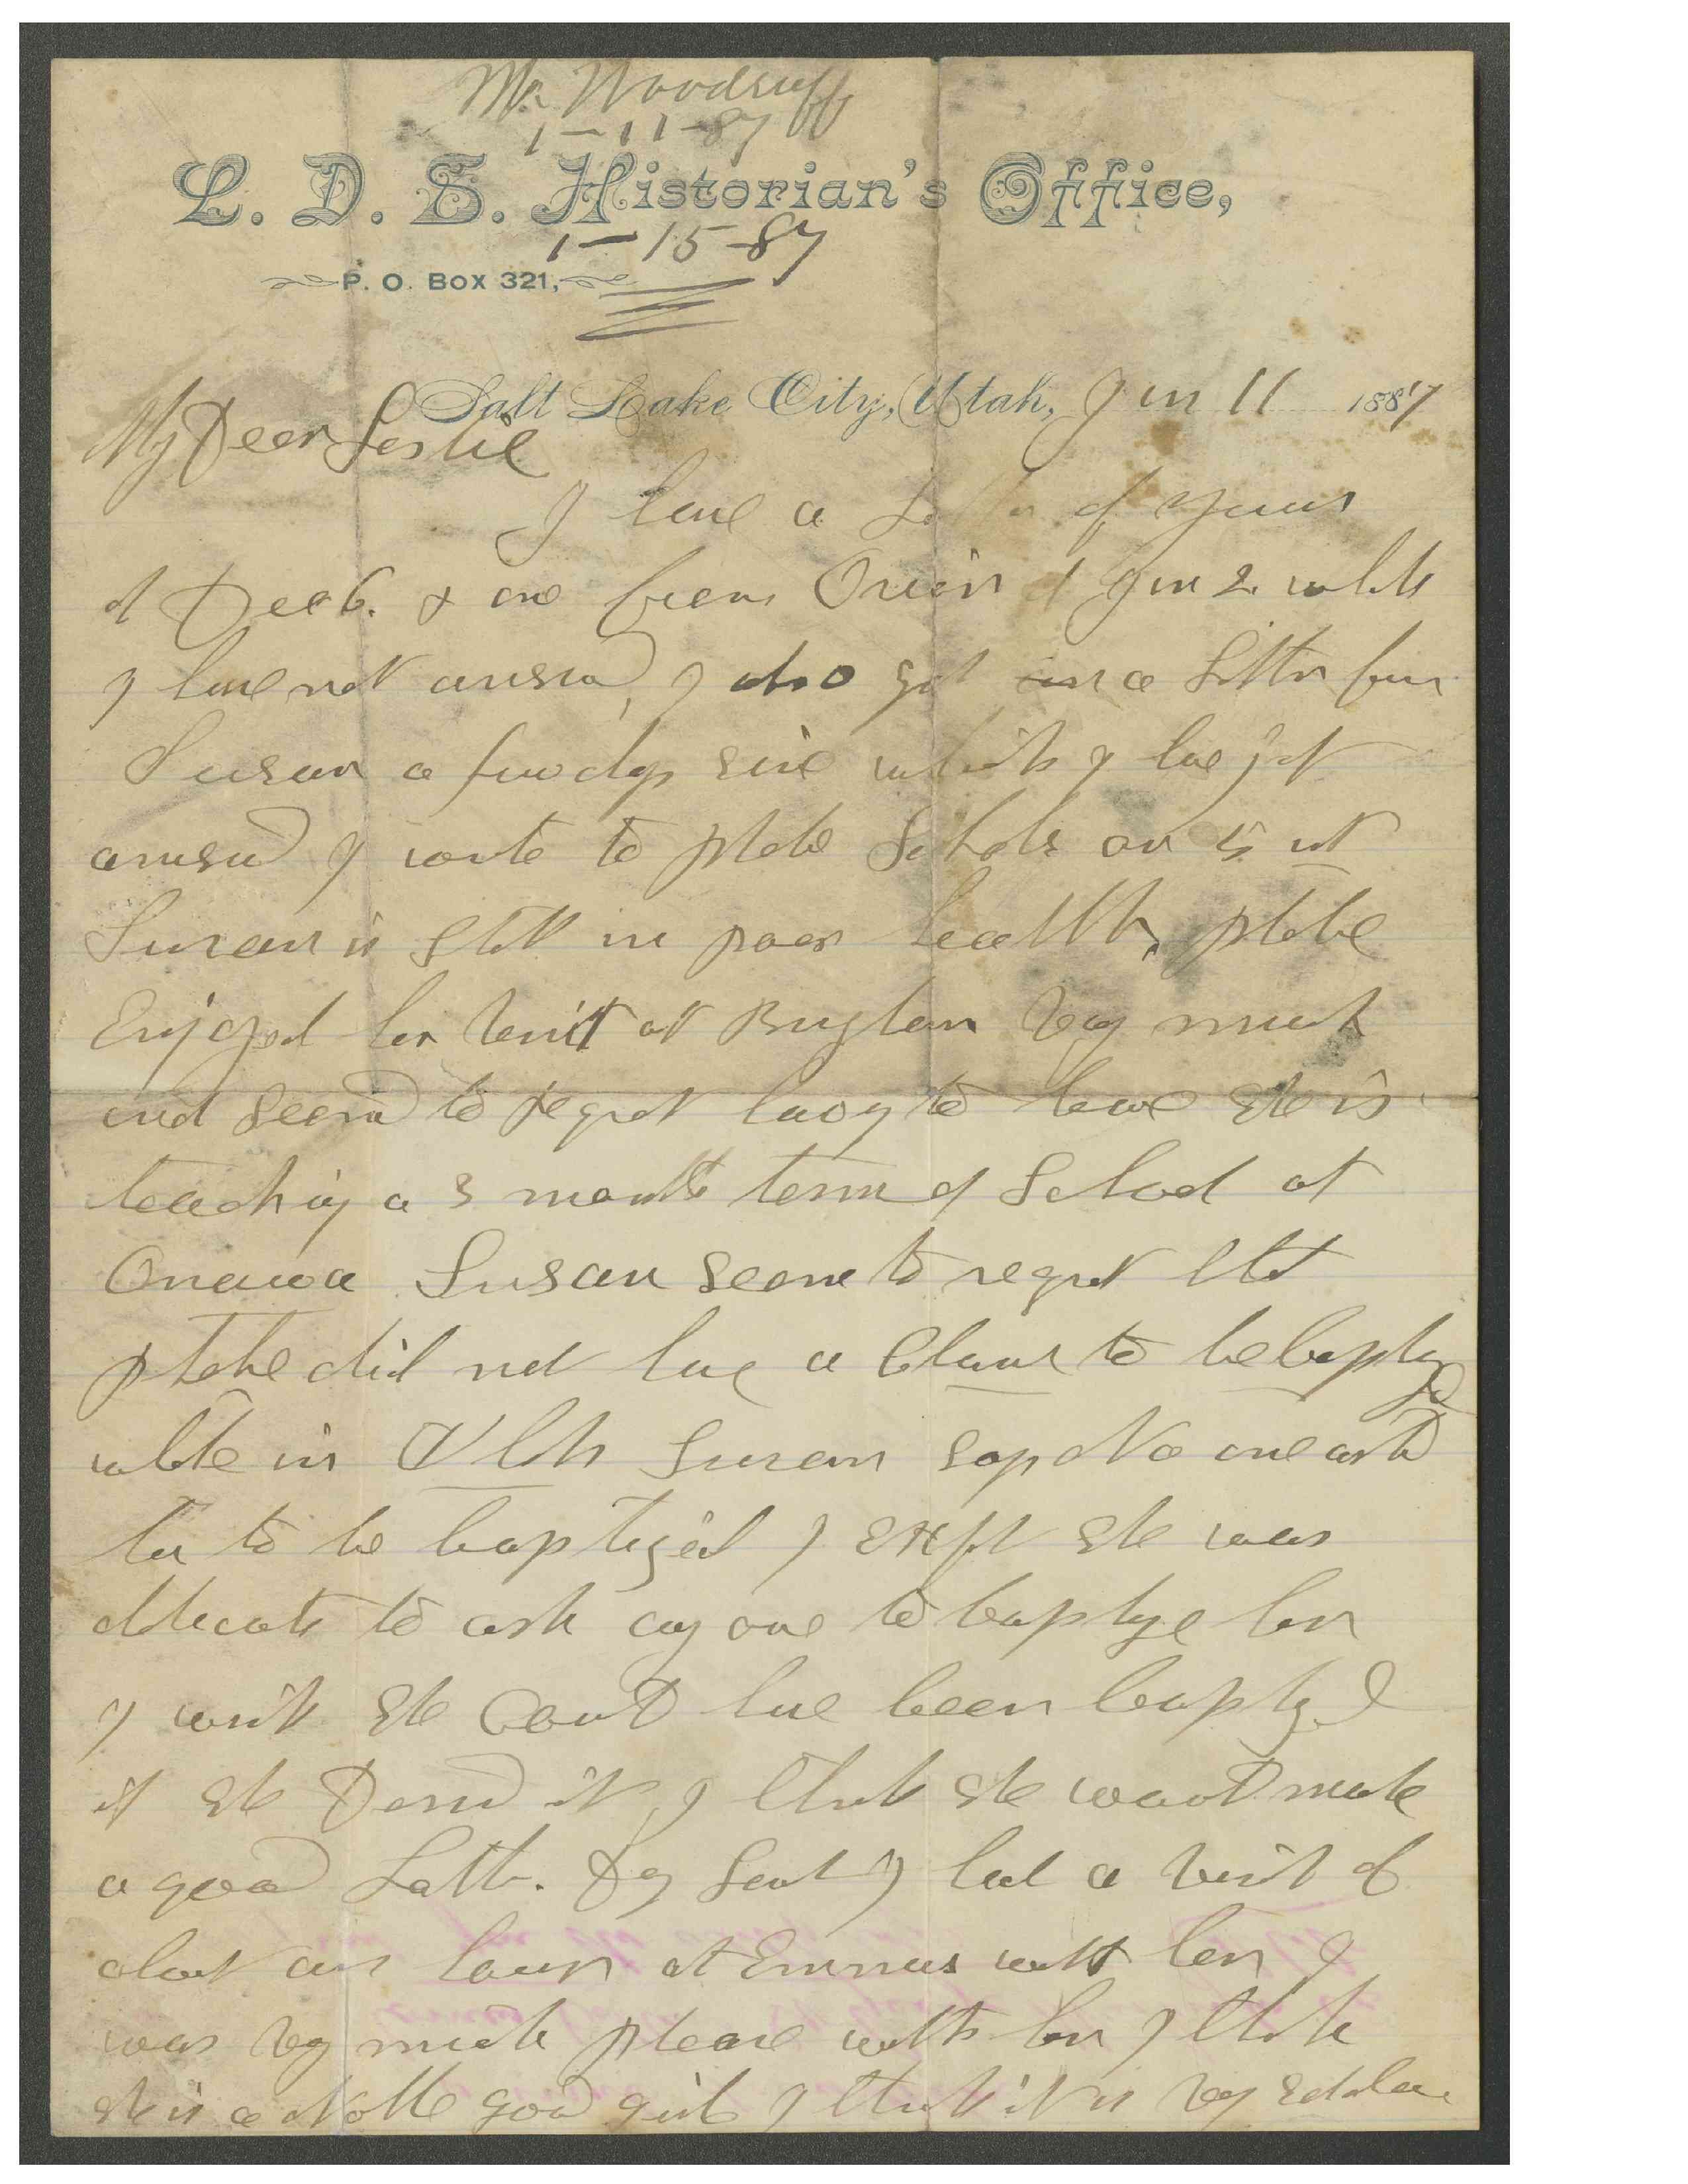 Mr. Woodruff
1-11-87
L. D. S. Historian's Office,
1-15-87
P. O. BOX 321,
Salt Lake City, Utah, Jan 11 1887
My Dear Leslie
I have a Letter of yours
of Dec 6. & one from Orion of Jan 2. which
I have not answerd, I also got a Letter from
Susan a few days since which I have just
answerd I wrote to Phebe Scholes
Susan is still in poor health, Phebe
Enjoyed her visit at Brigham very much
and seemd to regret having to leave she is
teaching a 3 months term of School at
Onawa Susan seems to regret that
Phebe did not have a Chance to be baptized
while in Utah Susan says No one askd
her to be baptized I expect she was
delicate to ask any one to baptize her
I wish she Could have been baptized
if she Desired it, I think she would make
a good Latter Day Saint I had a visit of
about an hour at Emmas with her I
was very much pleased with her I think
she is a Noble good girl I think it is very seldom